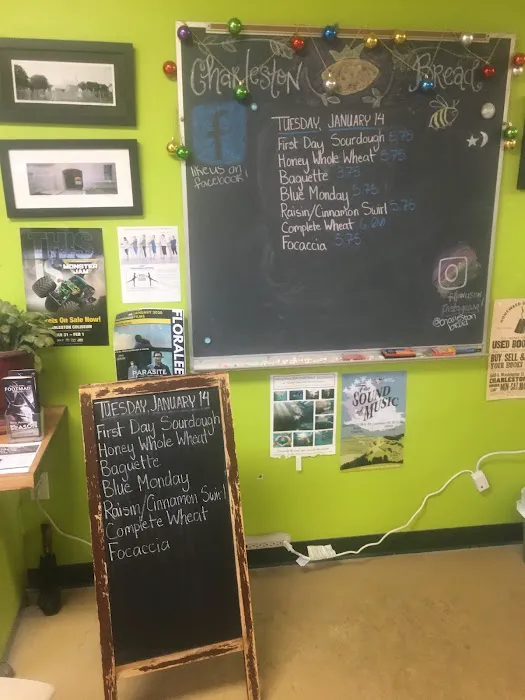 Charleston Bread
f
like us on
facebook!
TUESDAY, JANUARY 14
First Day Sourdough 5.75
Honey Whole Wheat 5.75
Baguette 3.75
Blue Monday 5.75
Raisin/Cinnamon Swirl 5.75
Complete Wheat
Focaccia 5.75
@charleston
bread
THIS
MONSTER
JAM
On Sale Now!
FLORALEE
PARASITE
The
SOUND
of
MUSIC
USED BOO
BUY SELL &
YOUR BOOKS
CHARLESTON
TUESDAY, JANUARY 14
First Day Sourdough
Honey Whole Wheat
Baguette
Blue Monday
Raisin/Cinnamon Swirl
Complete Wheat
Focaccia